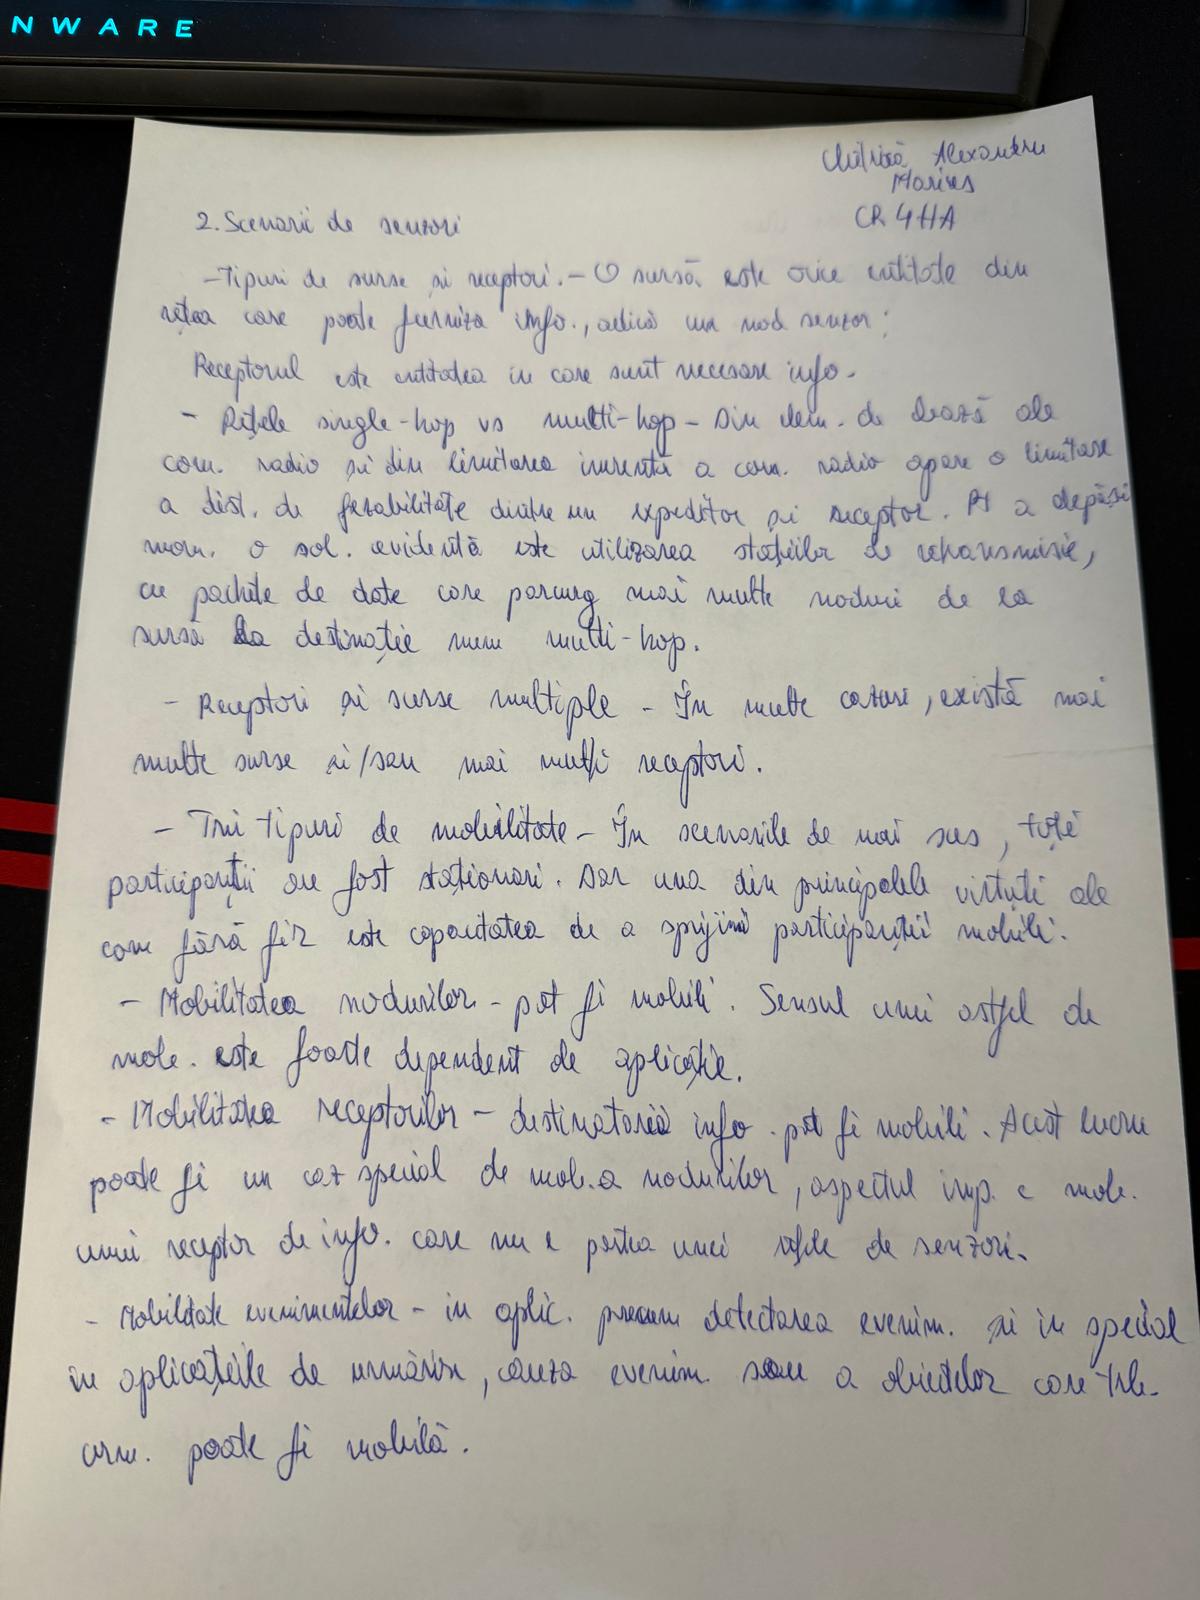 NWARE
Alexandru
Marius
CR 4HA
2. Scenarii de senzori
- Tipuri de surse și receptori. - O sursă este orice entitate din
rețea care poate furniza info., adică un nod senzor;
Receptorul este entitatea in care sunt necesare info.
- Rețele single-hop vs multi-hop - Din dem. de bază ale
com. radio și din limitarea inerentă a com. radio apare o limitare
a dist. de fezabilitate dintre un expeditor și receptor. Pt a depăși
mom. o sol. evidentă este utilizarea stațiilor de retransmisie,
cu pachete de date care parcurg mai multe noduri de la
sursă la destinație num multi-hop.
- Receptori și surse multiple - În multe cazuri, există mai
multe surse și/sau mai mulți receptori.
- Trei tipuri de mobilitate - În scenariile de mai sus, toți
participanții au fost staționari. Dar una din principalele virtuți ale
com fără fir este capacitatea de a sprijini participanții mobili.
- Mobilitatea nodurilor - pot fi mobili. Sensul unei astfel de
mob. este foarte dependent de aplicație.
- Mobilitatea receptorilor - destinatarii info. pot fi mobili. Acest lucru
poate fi un caz special de mob. a nodurilor, aspectul imp. e mob.
unui receptor de info. care nu e partea unei rețele de senzori.
- Mobilitate evenimentelor - in aplic. precum detectarea evenim. și in special
in aplicațiile de urmărire, cauza evenim. sau a obiectelor care treb.
urm. poate fi mobilă.